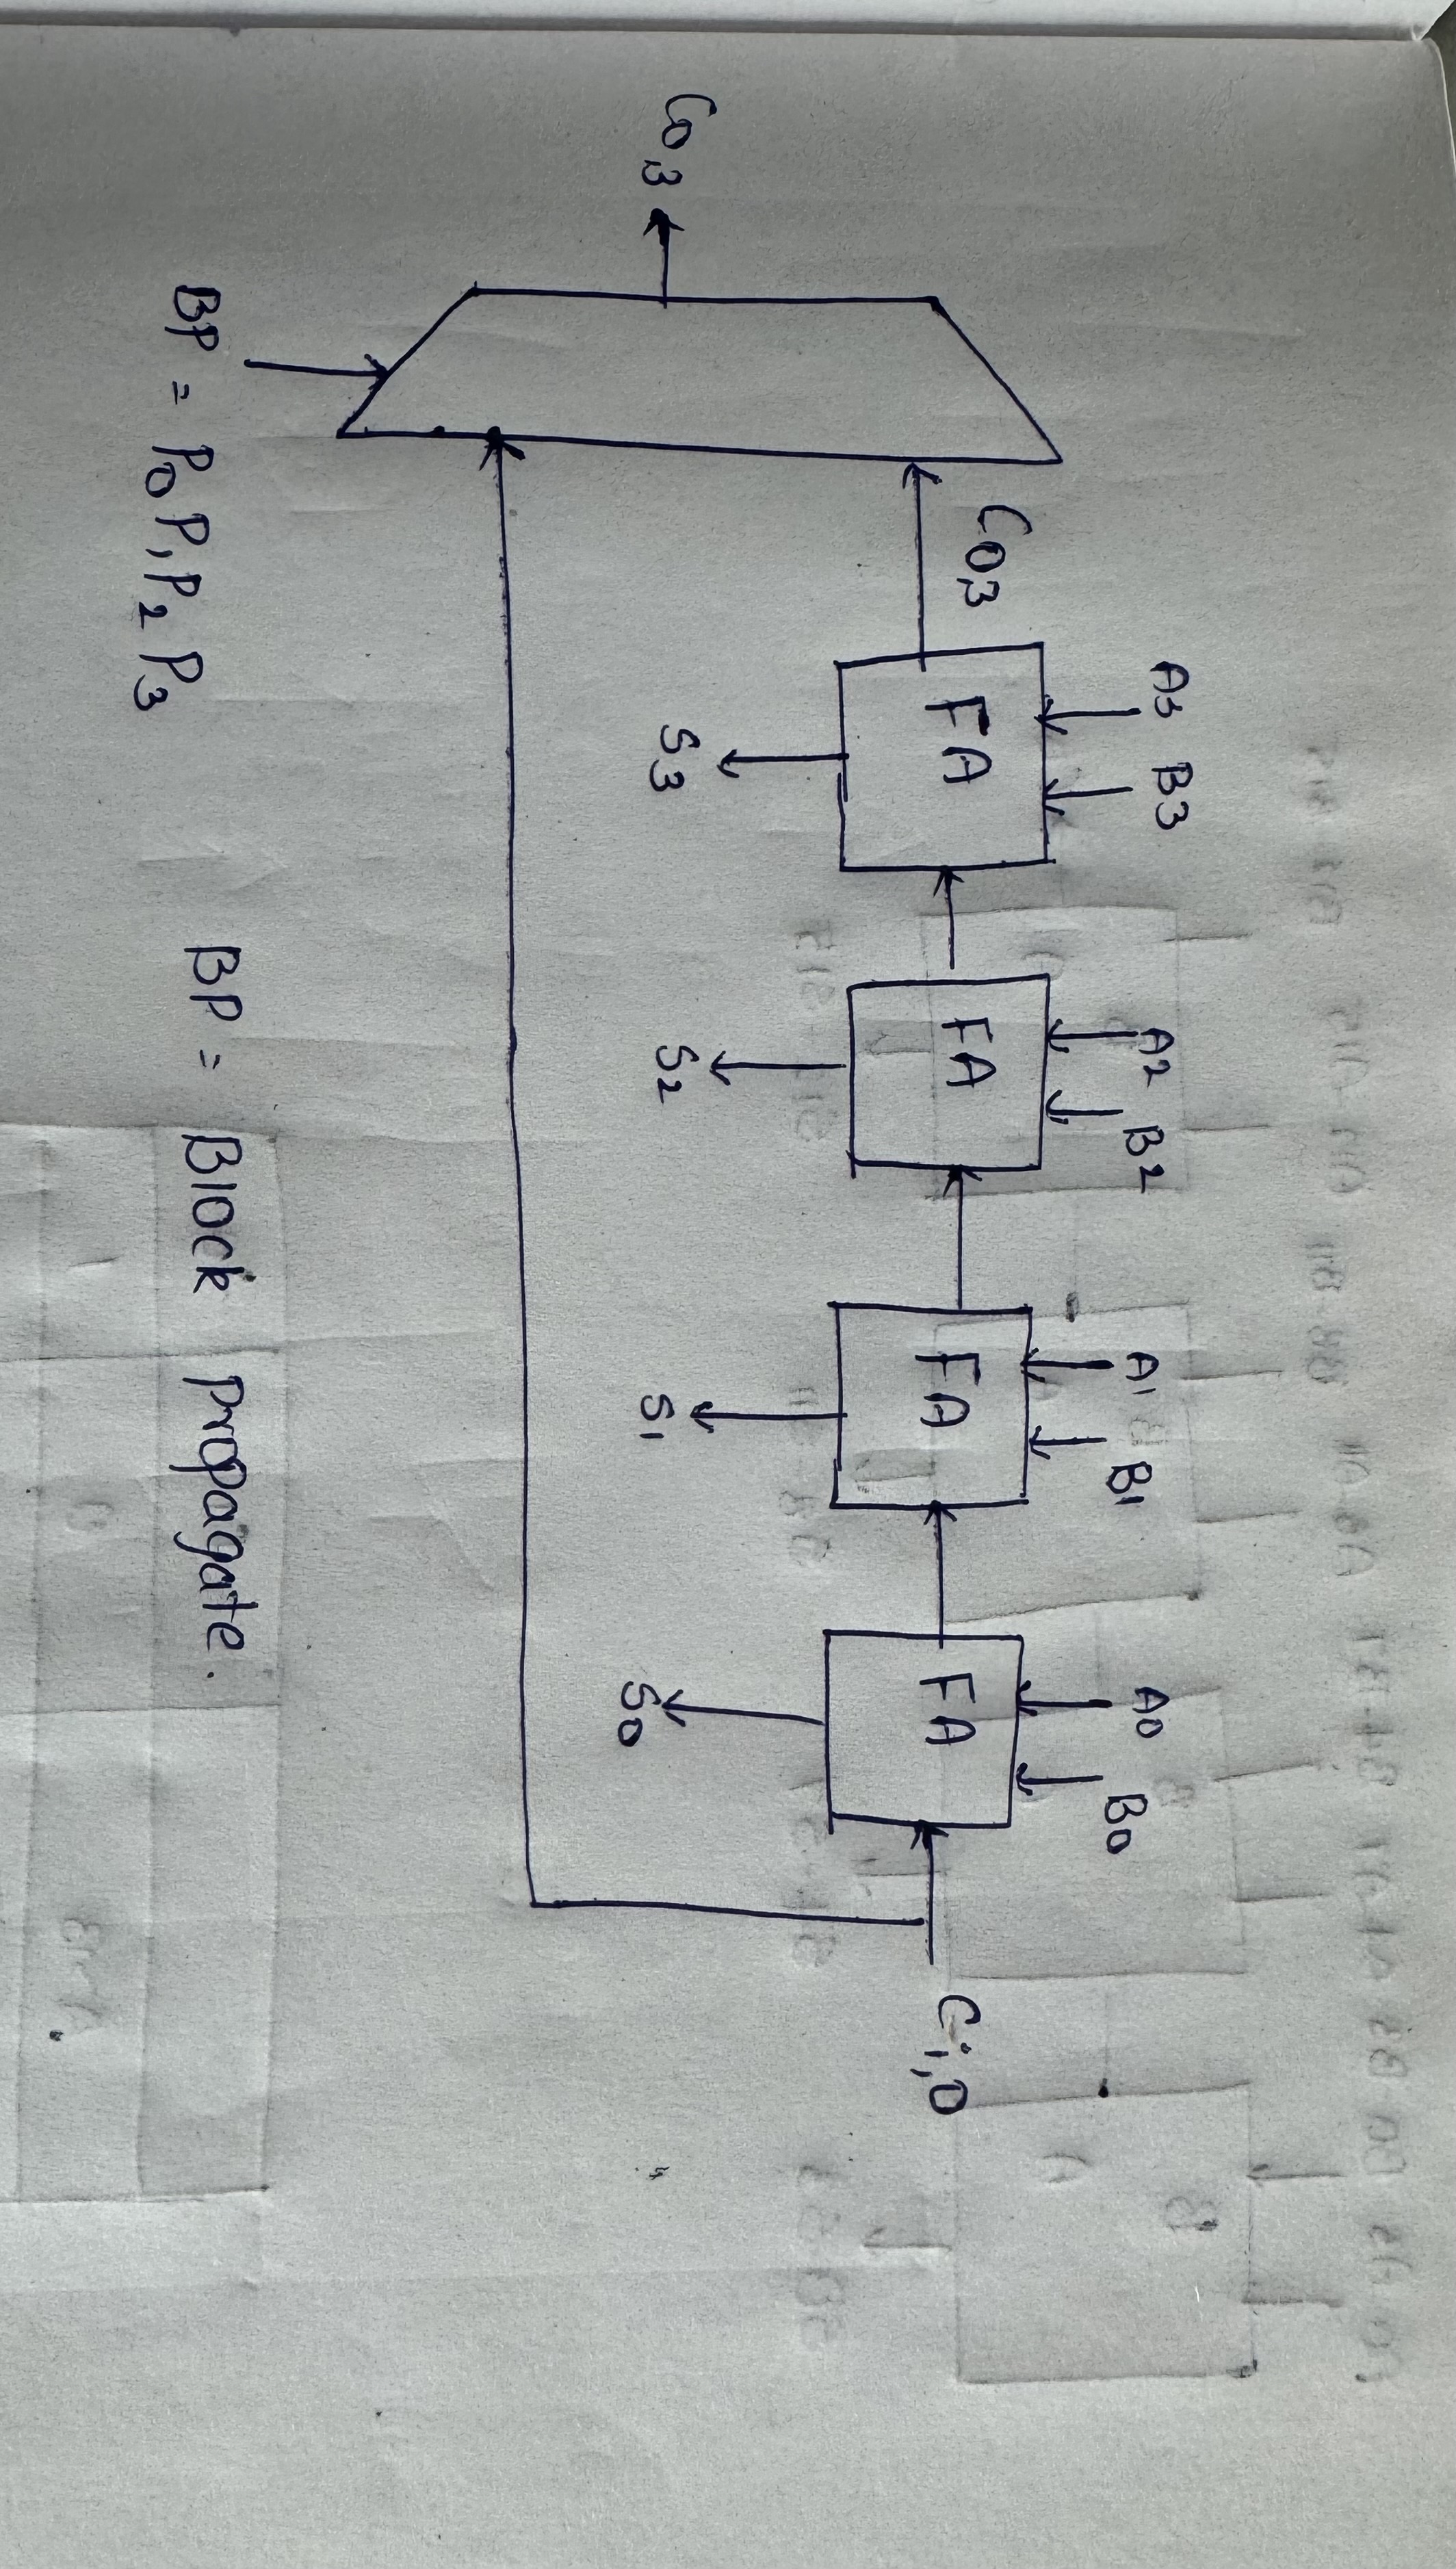 A3 B3 A2 B2 A1 B1 A0 B0
Co,3 FA FA FA FA Ci,0
Co,3 S3 S2 S1 S0
BP = P0 P1 P2 P3
BP = Block Propagate.